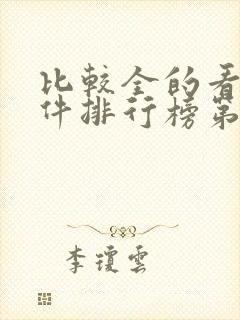 比較全的看
件排行榜第
李瓊雲